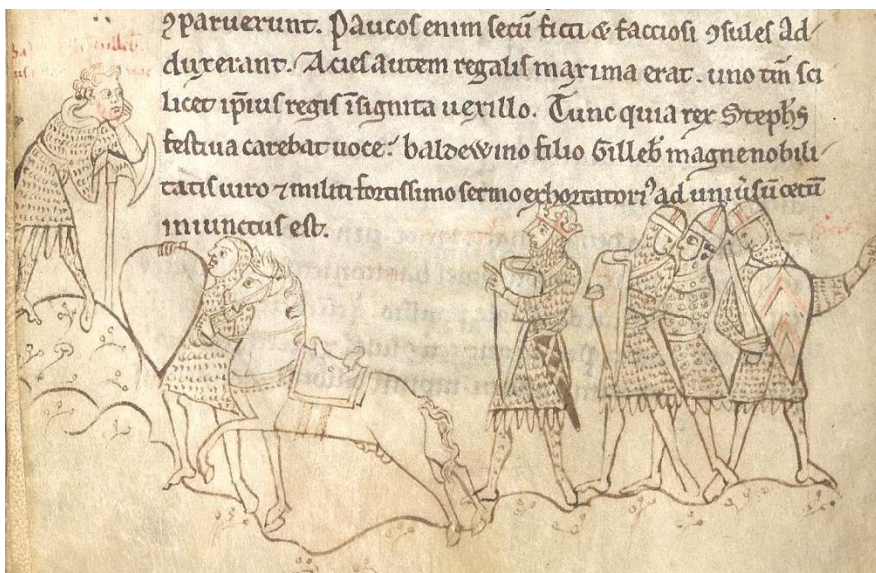 ꝯparuerunt. Paucos enim secū ficti & facciosi ꝯsules ad
duxerant. Acies autem regalis maxima erat. uno tm̄ sci
licet ip̄ius regis īsignita uexillo. Tunc quia rex Steph̄s
festiua carebat uoce: baldewino filio Gilleb̄ magne nobili
tatis uiro ⁊ militi fortissimo sermo exhortatoriꝰ ad uniū̓sū cetū
iniunctus est.